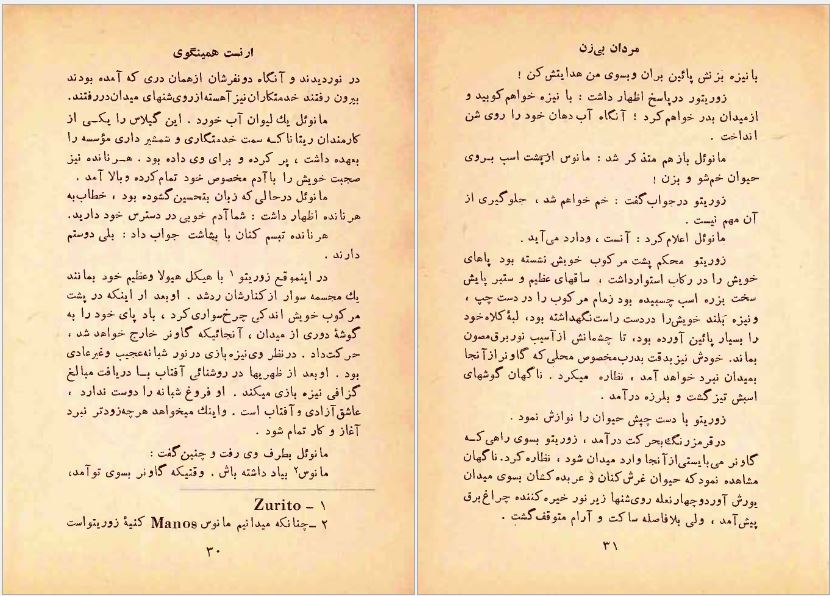 ارنست همینگوی
در نوردیدند و آنگاه دونفرشان ازهمان دری که آمده بودند
بیرون رفتند خدمتکاران نیز آهسته از روی شنهای میدان دررفتند.
مانوئل یك لیوان آب خورد . این گیلاس را یکی از
کارمندان ریتانا که سمت خدمتگاری و شمشیر داری مؤسسه را
بعهده داشت ، پر کرده و برای وی داده بود . هرناندە نیز
صحبت خویش را باآدم مخصوص خود تمام کرده وبالا آمد .
مانوئل درحالی که زبان بتحسین گشوده بود ، خطاب به
هرنانده اظهار داشت : شماآدم خوبی در دسترس خود دارید.
هرنانده تبسم کنان با بشاشت جواب داد : بلی دوستم
دارند .
در اینموقع زوریتو ۱ با هیکل هیولا وعظیم خود بمانند
یك مجسمه سوار از کنارشان ردشد . اوبعد از اینکه در پشت
مرکوب خویش اندکی چرخ سواری کرد ، باد پای خود را به
گوشهٔ دوری از میدان ، آنجائیکه گاونر خارج خواهد شد ،
حرکت داد . درنظر وی نیزه بازی درنور شبانه عجیب وغیرعادی
بود . اوبعد از ظهریها در روشنائی آفتاب بـا دریافت مبالغ
گزافی نیزه بازی میکند . او فروغ شبانه را دوست ندارد ،
عاشق آزادی و آفتاب است . واینك میخواهد هرچه زودتر نبرد
آغاز و کار تمام شود .
مانوئل بطرف وی رفت و چنین گفت :
مانوس۲ بیاد داشته باش . وقتیکه گاونر بسوی تو آمد،
۱ – Zurito
۲ –چنانکه میدانیم مانوس Manos کنیهٔ زوریتواست
۳۰
مردان بی‌زن
بانیزه بزنش پائین بران وبسوی من هدایتش کن !
زوریتو درپاسخ اظهار داشت : با نیزه خواهم کوبید و
ازمیدان بدر خواهم کرد ؛ آنگاه آب دهان خود را روی شن
انداخت .
مانوئل بازهم متذکر شد : مانوس ازپشت اسب بـروی
حیوان خم شو و بزن !
زوریتو درجواب گفت : خم خواهم شد ، جلوگیری از
آن مهم نیست .
مانوئل اعلام کرد : آنست ، ودارد می‌آید .
زوریتو محکم پشت مرکوب خویش نشسته بود پاهای
خویش را در رکاب استوارداشت ، ساقهای عظیم و ستبر پایش
سخت بزره اسب چسبیده بود زمام مرکوب را در دست چپ ،
ونیزه بلند خویش را دردست راست نگهداشته بود، لبهٔ کلاه خود
را بسیار پائین آورده بود، تا چشمانش ازآسیب نوربرق مصون
بماند. خودش نیز بدقت بدرب مخصوص محلی که گاونر ازآنجا
بمیدان نبرد خواهد آمد ، نظاره میکرد . ناگهان گوشهای
اسبش تیز گشت و بلرزه درآمد .
زوریتو با دست چپش حیوان را نوازش نمود .
درقرمز رنگ بحرکت درآمد ، زوریتو بسوی راهی کـه
گاونر می‌بایستی ازآنجا وارد میدان شود ، نظاره کرد. ناگهان
مشاهده نمود که حیوان غرش کنان و عربده کشان بسوی میدان
یورش آورد وچهارنعله روی شنها زیر نور خیره کننده چراغ برق
پیش آمد ، ولی بلافاصله ساکت و آرام متوقف گشت .
۳۱